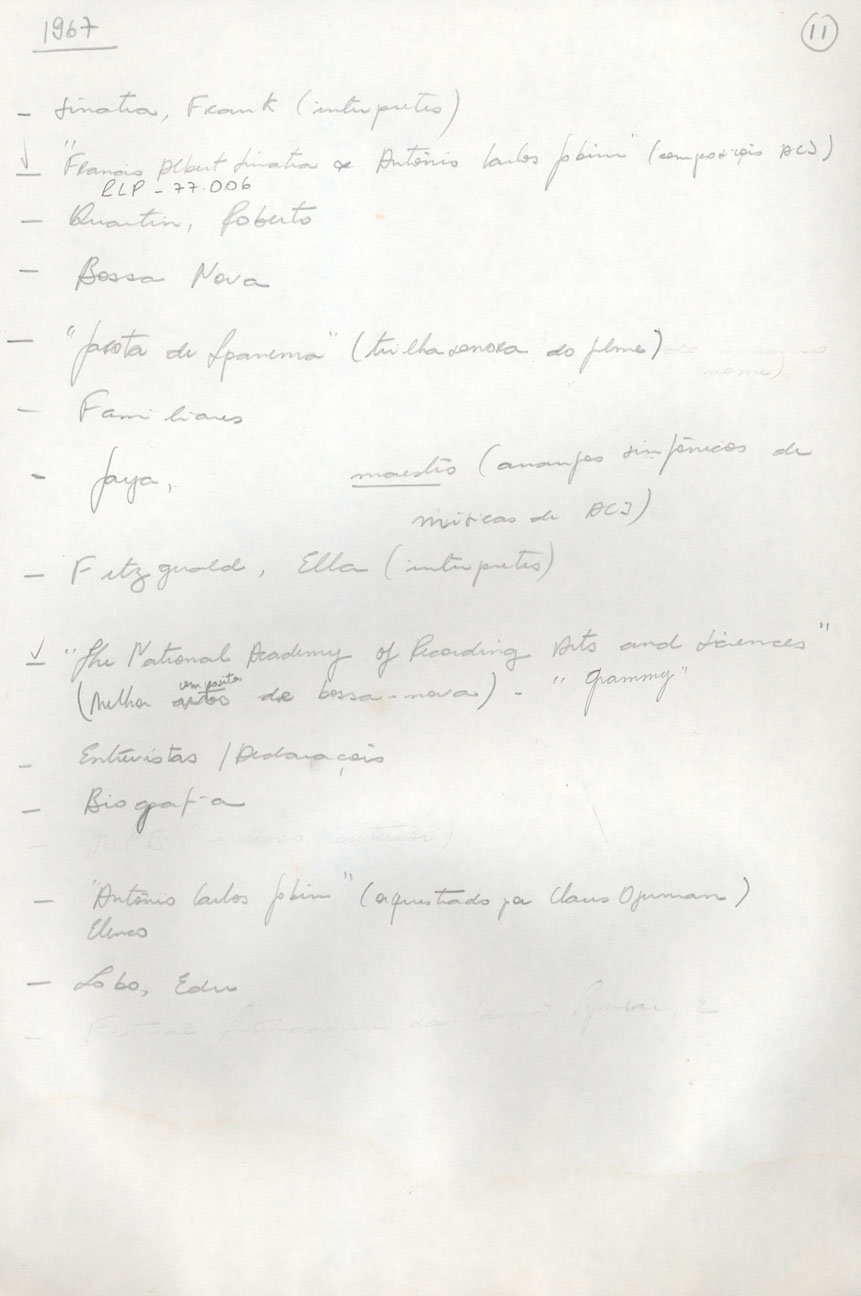 1967
11
- Sinatra, Frank (intérpretes)
- "Francis Albert Sinatra & Antônio Carlos Jobim" (composições ACJ)
RLP - 77.006
- Quartin, Roberto
- Bossa Nova
- "Garota de Ipanema" (trilha sonora do filme)
- Familiares
- Gaya, maestro (arranjos sinfônicos de
músicas de ACJ)
- Fitzgerald, Ella (intérpretes)
- "The National Academy of Recording Arts and Sciences"
compositor
(Melhor de bossa-nova) - "Grammy"
- Entrevistas / Declarações
- Biografia
- "Antônio Carlos Jobim" (orquestrado por Claus Ogerman)
Elenco
- Lobo, Edu